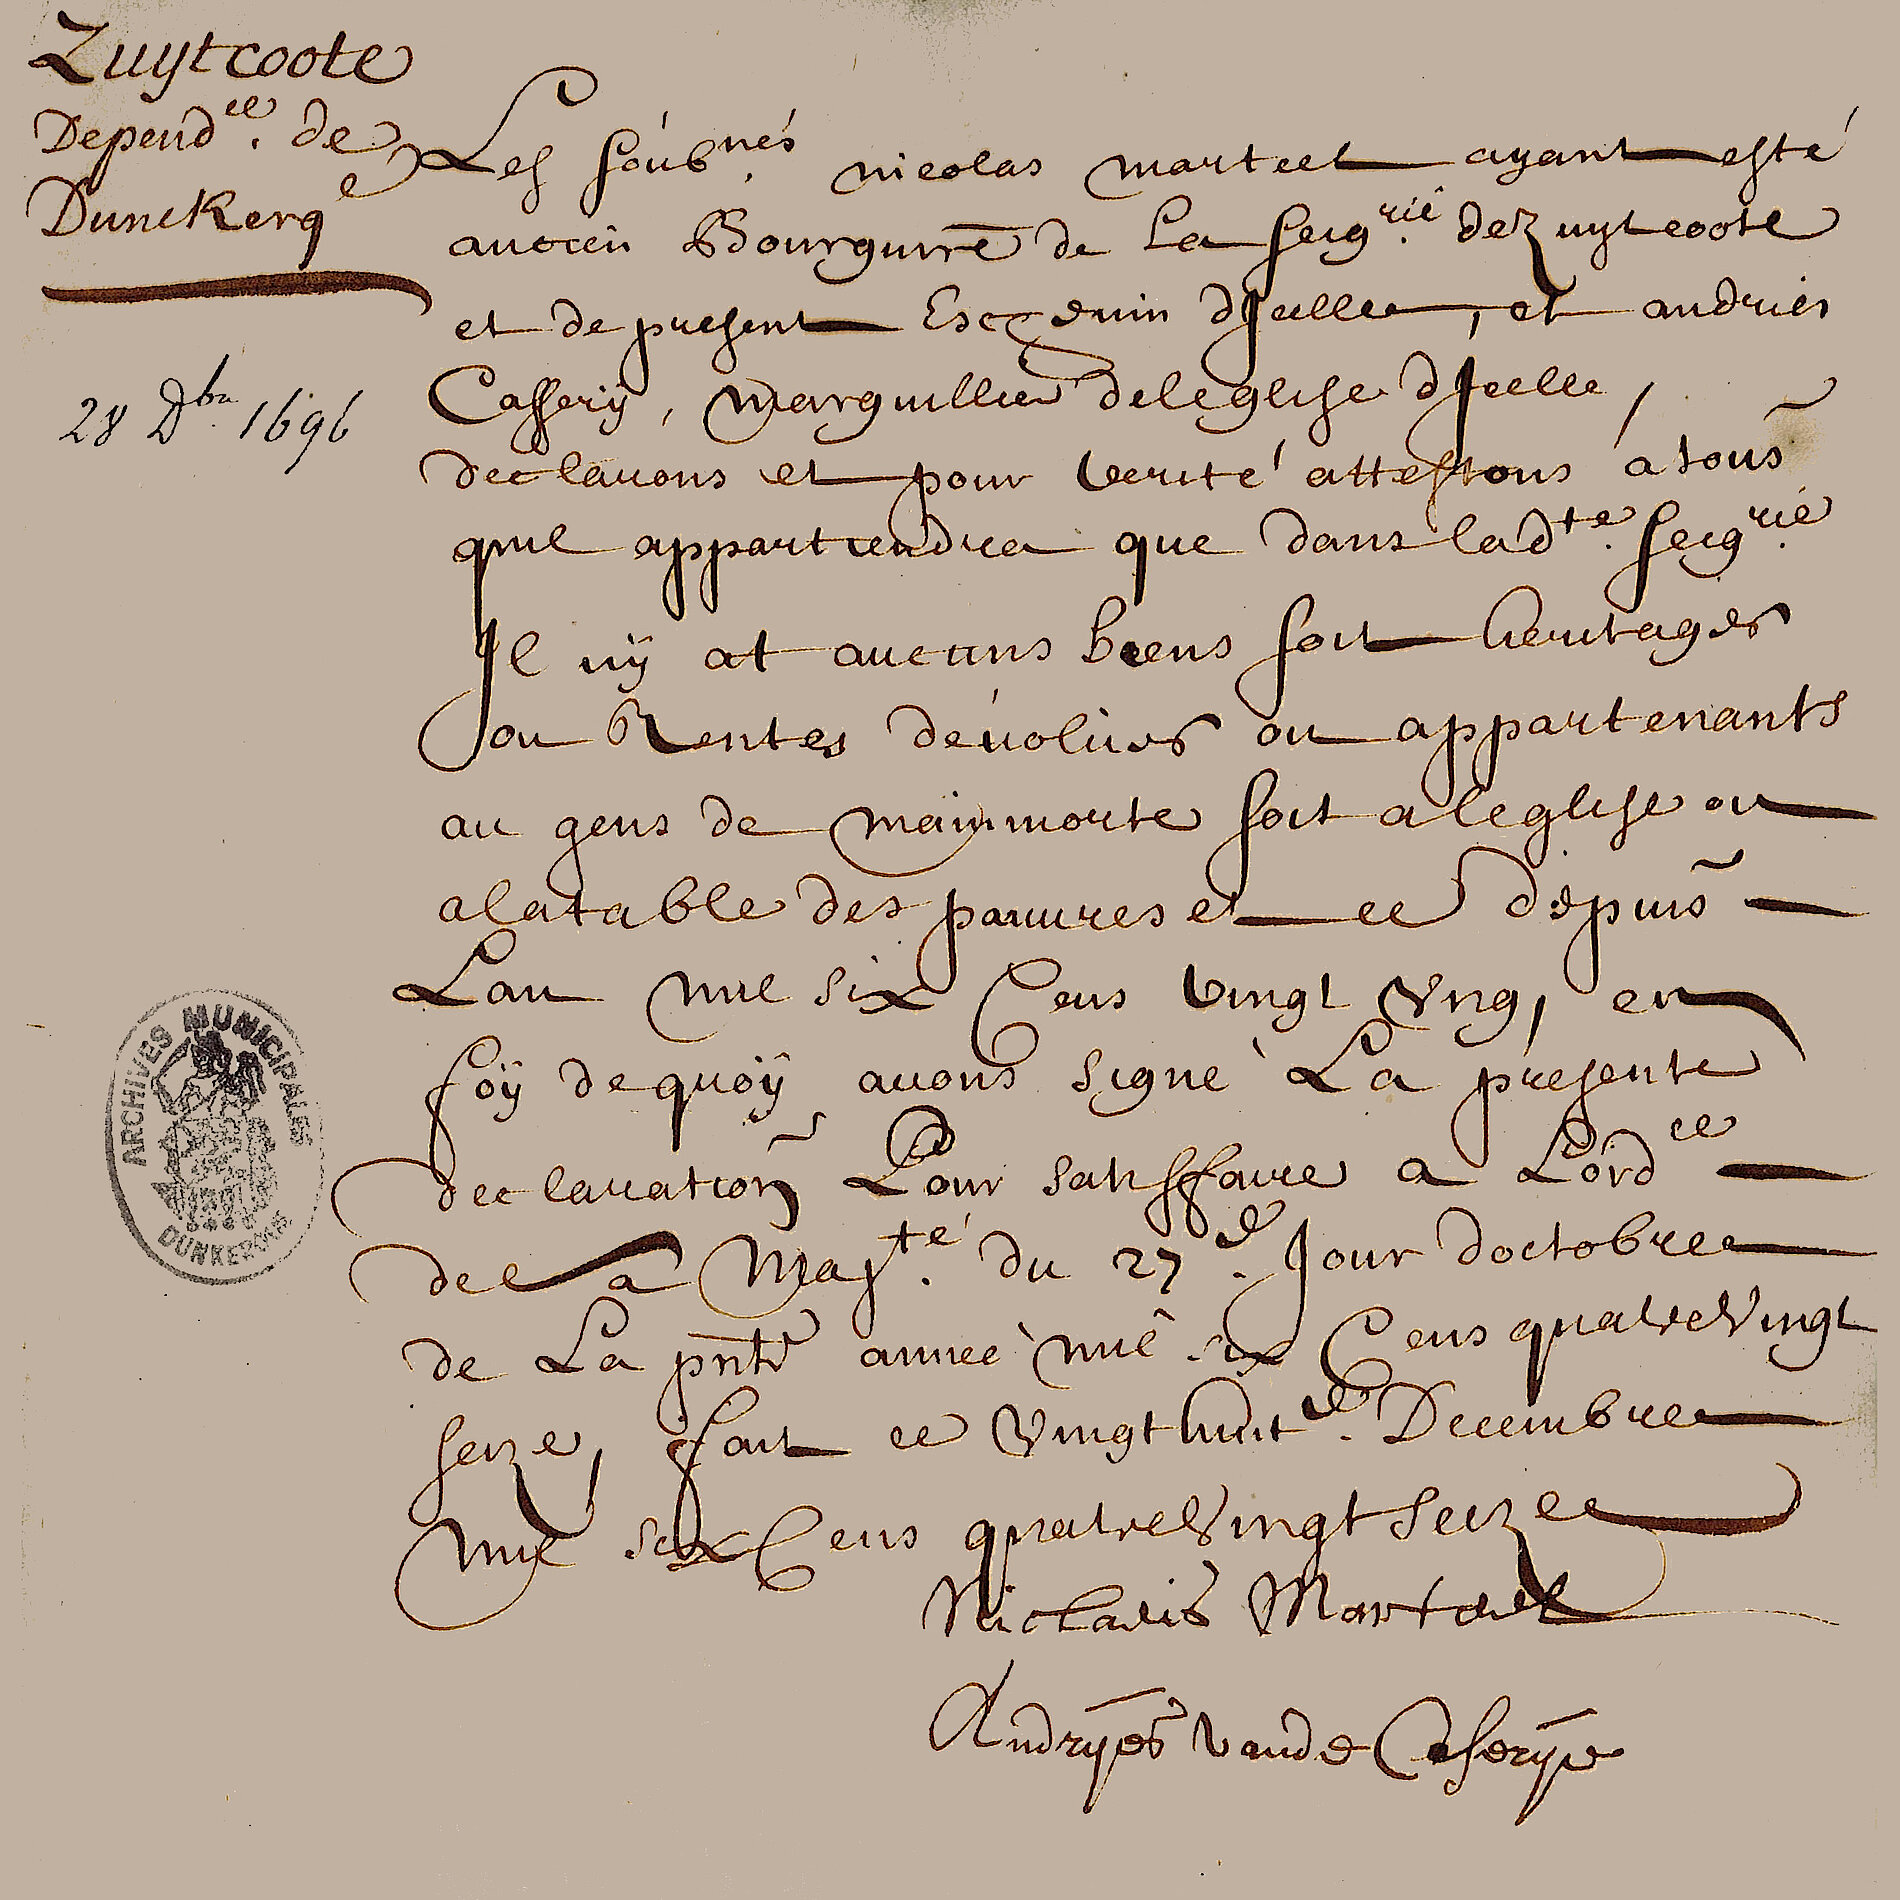 Zuytcoote
Depend.ce de
Dunckerq.e
28 Dbre 1696
Les soubnés. nicolas marteel ayant esté
ancien Bourgmre de La seig.rie de Zuytcoote
et de present Eschevin d'Jcelle, et andries
Casserÿ, marguillier de leglise d'Jcelle,
declarons et pour verité attestons á tous
quil appartiendra que dans lad.te seig.rie
Jl nÿ at aucuns biens soit heritages
ou Rentes dévolúes ou appartenants
au gens de mainmorte soit a leglise ou
a la table des pauvres et ce depuis
Lan mil six Cens vingt Ung, en
foÿ de quoÿ avons signé La presente
declaration Pour satisffaire a Lord.ce
de sa Maj.té du 27.e Jour doctobre
de La pnte année mil six Cens quatre Vingt
seize, fait ce Vingthuit.e Decembre
mil six Cens quatre Vingt Seize
Niclaeis Marteel
Andryes vande Caserije
ARCHIVES MUNICIPALES
DUNKERQUE